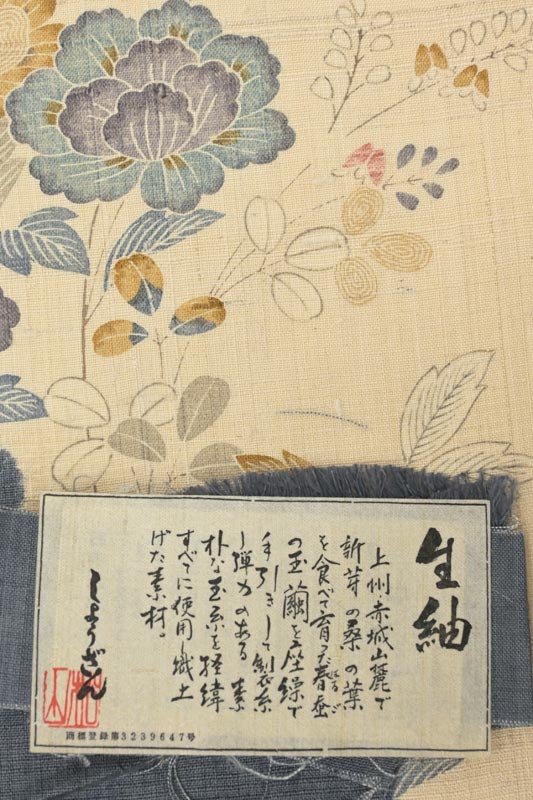 生紬
上州・赤城山麓で
新芽の桑の葉
を食べて育った春蚕
はるご
の玉繭を座繰で
手引きして製糸
し弾力のある素
朴な玉糸を経緯
すべてに使用し織上
げた素材。
しょうざん
商標登録第3239647号